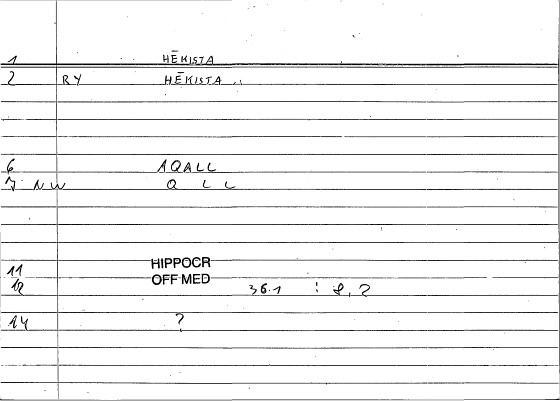 1 HĒKISTA
2 RY HĒKISTA ..
6 AQALL
7 NW Q L L
11 HIPPOCR
OFF MED
12 36.1 : 8, 2
14 ?